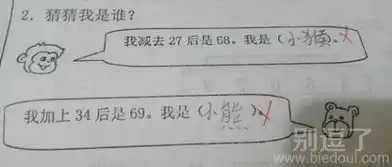 2. 猜猜我是谁?
我减去27后是68。我是(小猴)
我加上34后是69。我是(小熊)。
别逗了
www.biedoul.com